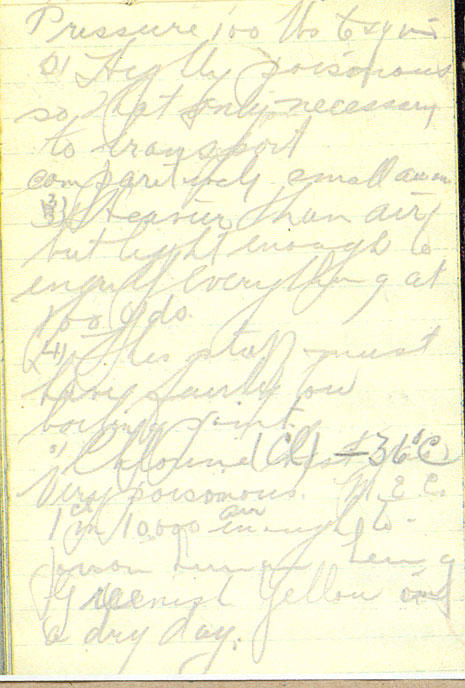 Pressure 100 lbs to sq in
2) Highly poisonous
so that only necessary
to transport
comparitively small
3) Heavier than air
but light enough to
engulf everything at
yds.
4) This stuff must
have fairly low
boiling point.
Chlorine (Cl) -36°C
Very poisonous.
1 in 10,000 air enough to
poison human being
Greenish Yellow
a dry day.